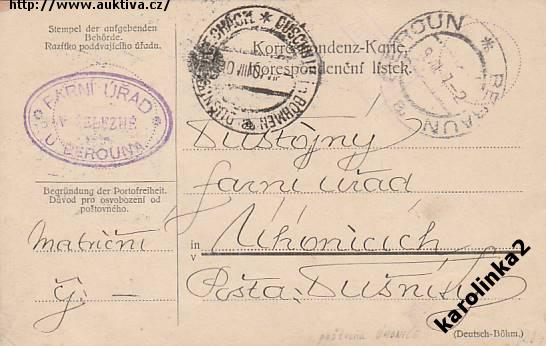 http://www.auktiva.cz/
Stempel der aufgebenden
Behörde.
Razítko podávajícího úřadu.
Korrespondenz-Karte.
Korespondenční lístek.
FARNÍ ÚŘAD
U BEROUNA
DUSCHNIK IN BÖHMEN
BEROUN * BERAUN
Důstojný
farní úřad
Begründung der Portofreiheit.
Důvod pro osvobození od
poštovného.
in
v
Úhonicích
Matriční
Pošta: Dušníky
č. –
(Deutsch-Böhm.)
karolinka2